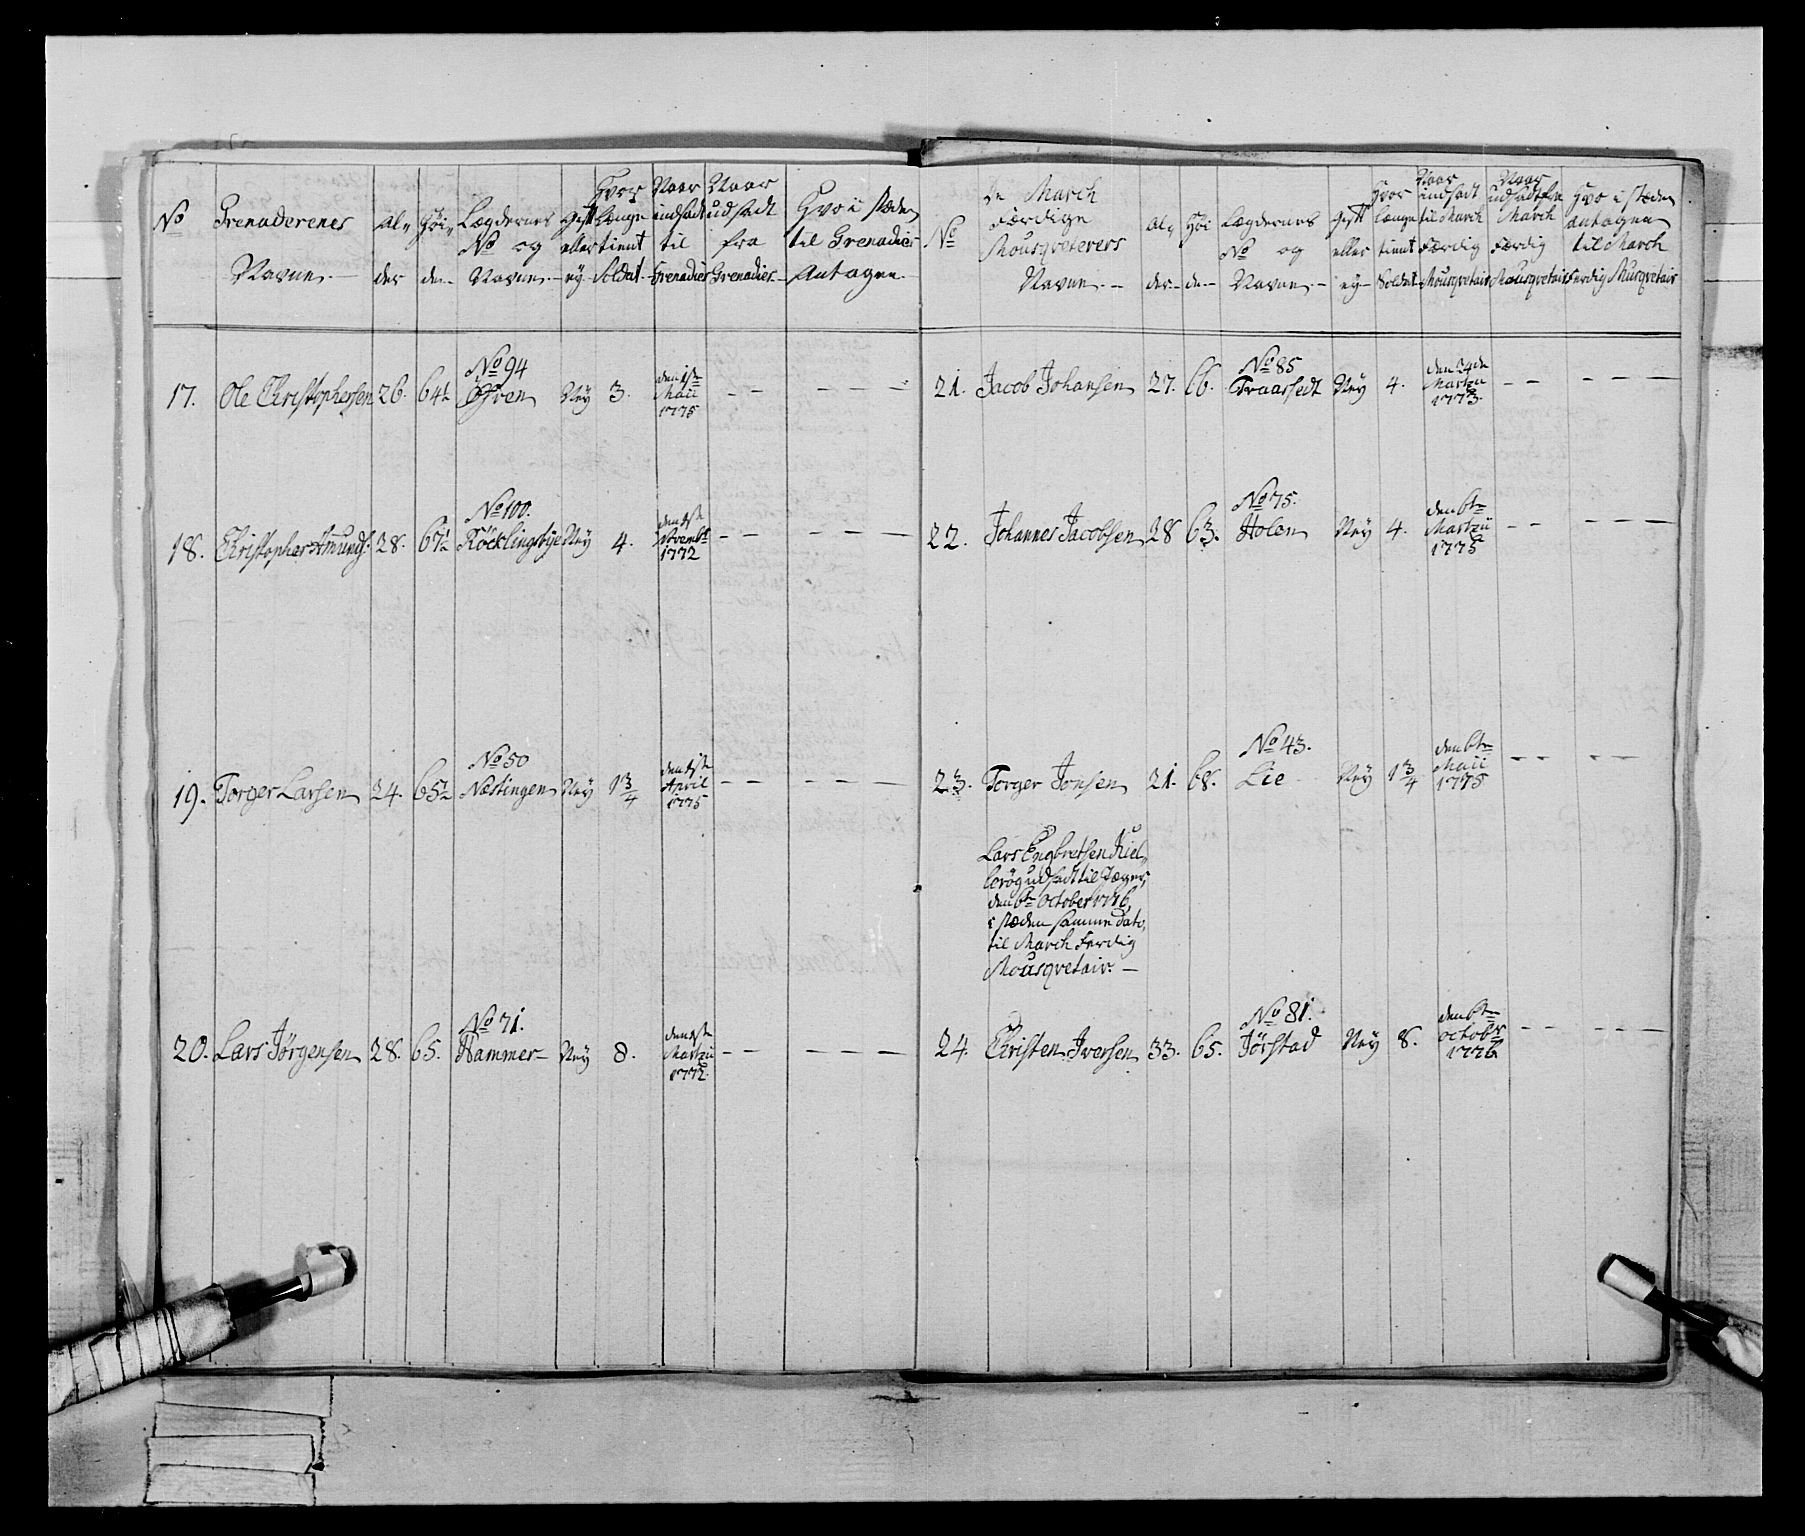 No
Grenaderenes
Navne.
Al„
der
Høi„
de
Lægdernes
No og
Navne.
Gift
eller
ey
Hvor
Længe
tient
Soldat
Naar
indsadt
til
Grenadier
Naar
udsadt
fra
Grenadier
Hvo i stæden
til Grenadier
Antagen.
17. Ole Christophersen 26. 64½ No 94 Øfren Ney 3. den 1ste Maii 1775 — — — — —
18. Christopher Amunds. 28. 67½ No 100. Röcklingsbye Ney 4. den 1ste Novembr 1772 — — — — —
19. Torger Larsen 24. 65½ No 50 Næstingen Ney 1¾ den 1ste April 1775 — — — — —
20. Lars Jörgensen 28. 65. No 71. Hammer Ney 8. den 1ste Martzii 1772. — — — — —
No
De March
Færdige
Mousqveterers
Navne.
Al„
der
Høi
de
Lægdernes
No og
Navne.
Gift
eller
ey
Hvor
Længe
tient
Soldat
Naar
indsadt
til March
Færdig
Mousqvetair
Naar
udsadt fra
March
Færdig
Mousqvetair
Hvo i stæden
antagen
til March
Ferdig Musqvetair
21. Jacob Johansen 27. 66. No 85 Traassedt Ney 4. den 24de Martzii 1773. — — — — —
22. Johannes Jacobsen 28 63. No 75. Holen Ney 4. den 6te Martzii 1775 — — — — —
23. Torger Jonsen 21. 68. No 43. Lie Ney 1¾ den 6te Maii 1775 — — — —
Lars Engbretsen Kiel„
udsadt til Jæger,
den 6te October 1776,
i stæden samme dato,
til March Ferdig
Mousqvetair. —
24. Christen Iversen 33. 65. No 81. Jörstad Ney 8. den 6te Octobr 1776. — — — — —